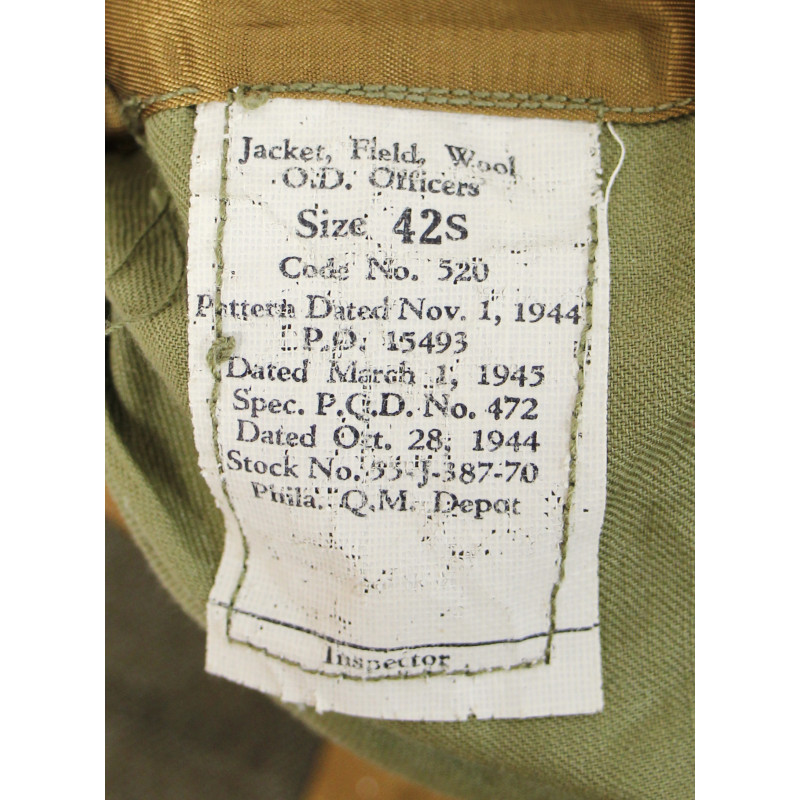 Jacket, Field, Wool
O.D. Officers
Size 42S
Code No. 520
Pattern Dated Nov. 1, 1944
P.O. 15493
Dated March 1, 1945
Spec. P.Q.D. No. 472
Dated Oct. 28, 1944
Stock No. 55-J-387-70
Phila. Q.M. Depot
Inspector